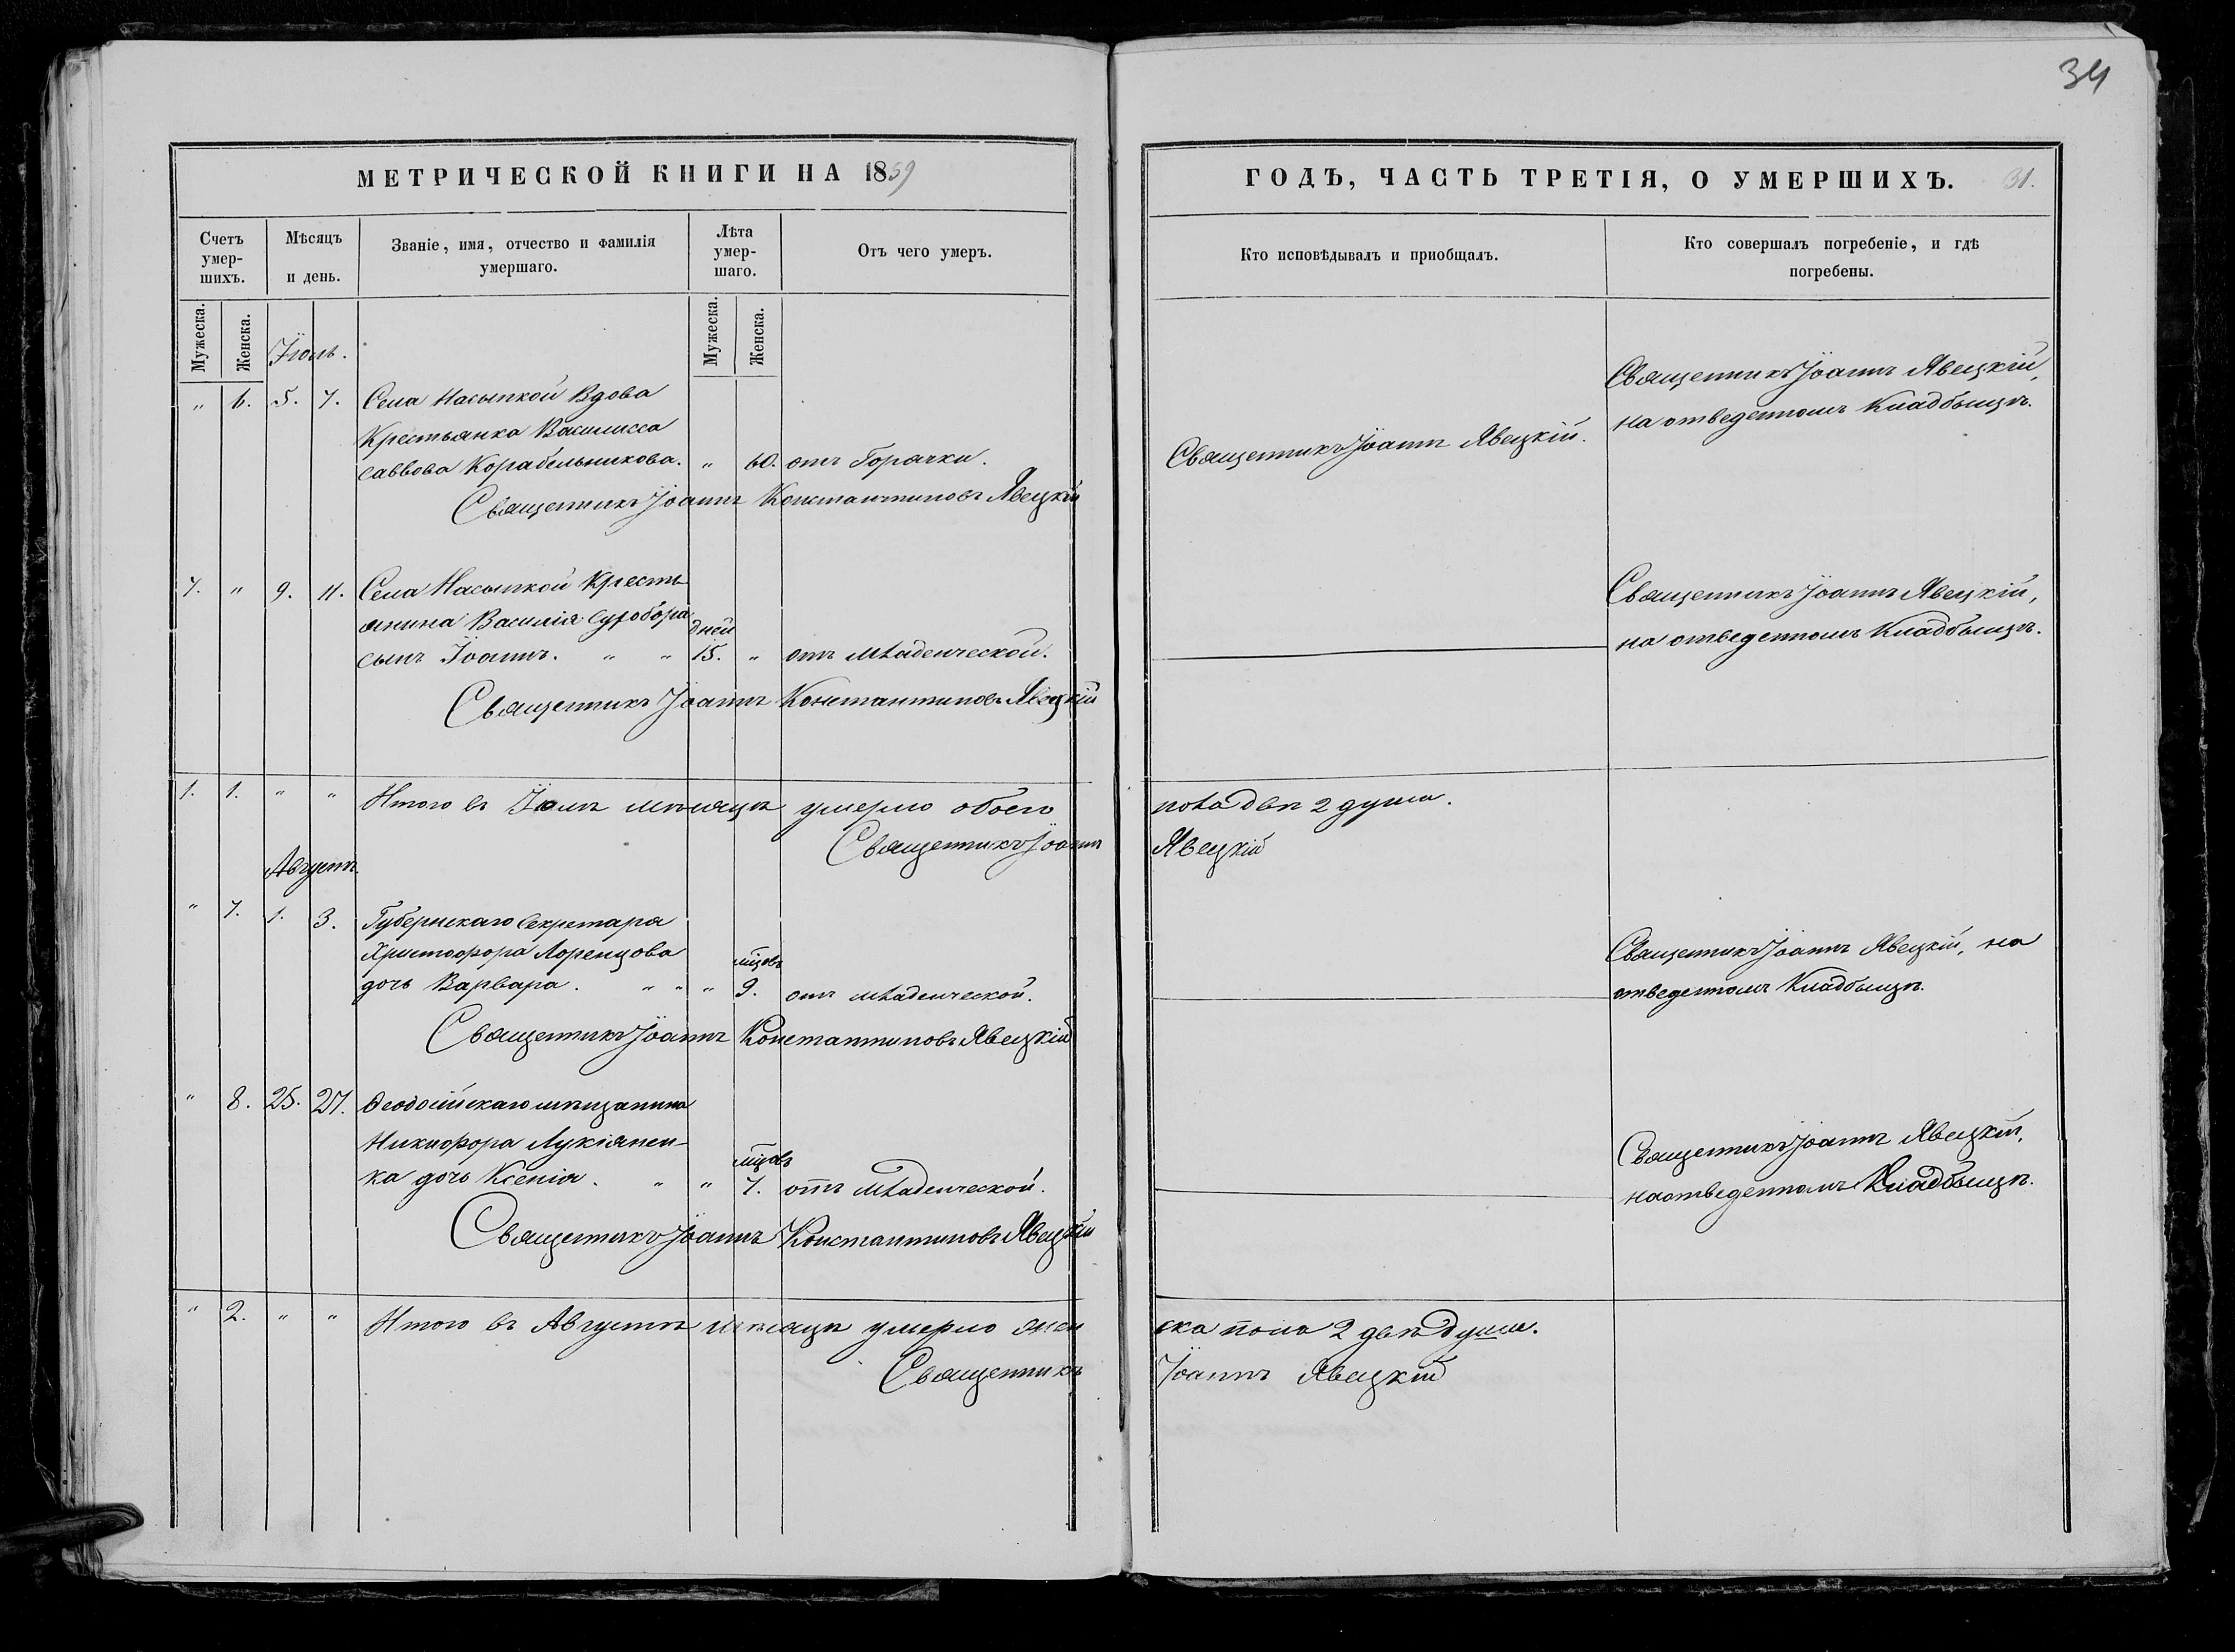 34
МЕТРИЧЕСКОЙ КНИГИ НА 1859
ГОДЪ, ЧАСТЬ ТРЕТІЯ, О УМЕРШИХЪ. 31.
Счетъ умер-шихъ.
Мѣсяцъ и день.
Званіе, имя, отчество и фамилія умершаго.
Лѣта умер-шаго.
Отъ чего умеръ.
Кто исповѣдывалъ и приобщалъ.
Кто совершалъ погребеніе, и гдѣ погребены.
Мужеска. Женска. Мужеска. Женска.
Іюль.
" 6. 5. 7. Села Насыпкой Вдова
Крестьянка Василисса
Саввова Корабельникова. " 60. отъ Горячки.
Священникъ Іоаннъ Явецкій.
Священникъ Іоаннъ Явецкій,
на отведенномъ Кладбыщѣ.
Священникъ Іоаннъ Константиновъ Явецкій
7. " 9. 11. Села Насыпкой Кресть-
янина Василія Суробора
дней
сынъ Іоаннъ. " " 15. " отъ Младенческой.
Священникъ Іоаннъ Явецкій,
на отведенномъ Кладбыщѣ.
Священникъ Іоаннъ Константиновъ Явецкій
1. 1. " " Итого въ Іюлѣ мѣсяцѣ умерло обоего пола двѣ 2 души.
Священникъ Іоаннъ Явецкій
Августъ.
" 7. 1. 3. Губернскаго Секретаря
Христофора Лоренцова
мцовъ
дочь Варвара. " " " 9. отъ младенческой.
Священникъ Іоаннъ Явецкій, на
отведенномъ Кладбыщѣ.
Священникъ Іоаннъ Константиновъ Явецкій
" 8. 25. 27. Ѳеодосійскаго мѣщанина
Никифора Лукіянен-
мцовъ
ка дочь Ксенія. " " 7. отъ Младенческой.
Священникъ Іоаннъ Явецкій,
на отведенномъ Кладбыщѣ.
Священникъ Іоаннъ Константиновъ Явецкій
" 2. " " Итого въ Августѣ мѣсяцѣ умерло женска пола 2 двѣ души.
Священникъ Іоаннъ Явецкій